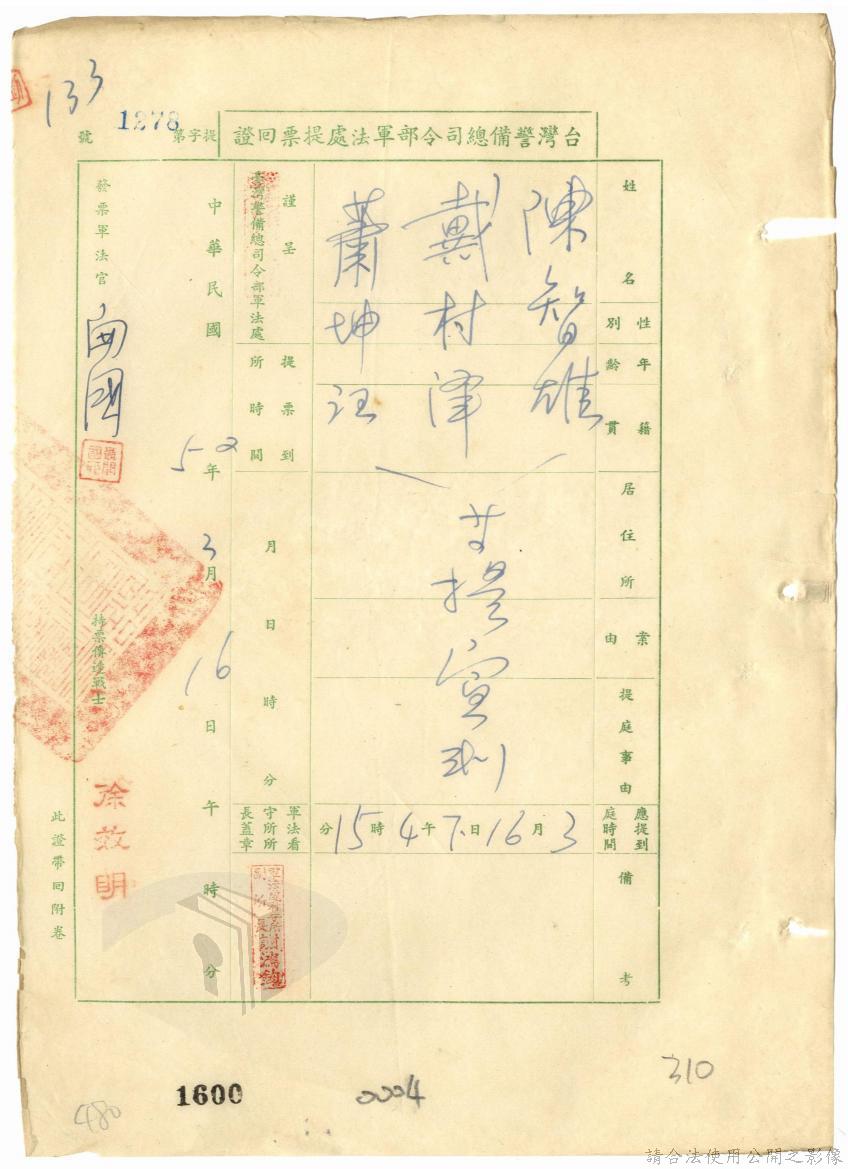 133
台灣警備總司令部軍法處提票回證
提字第1278號
姓名
性別
年齡
籍貫
居住所
案由
提庭事由
應提到庭時間
備考
陳智雄
戴村澤
蕭坤旺
提宣判
3月16日下午4時15分
謹呈
臺灣警備總司令部軍法處
提票到所時間
月日時分
軍法看守所所長蓋章
中華民國52年3月16日午時分
發票軍法官
持票傳達戰士
徐效明
此證帶回附卷
480
1600
0004
310
請合法使用公開之影像